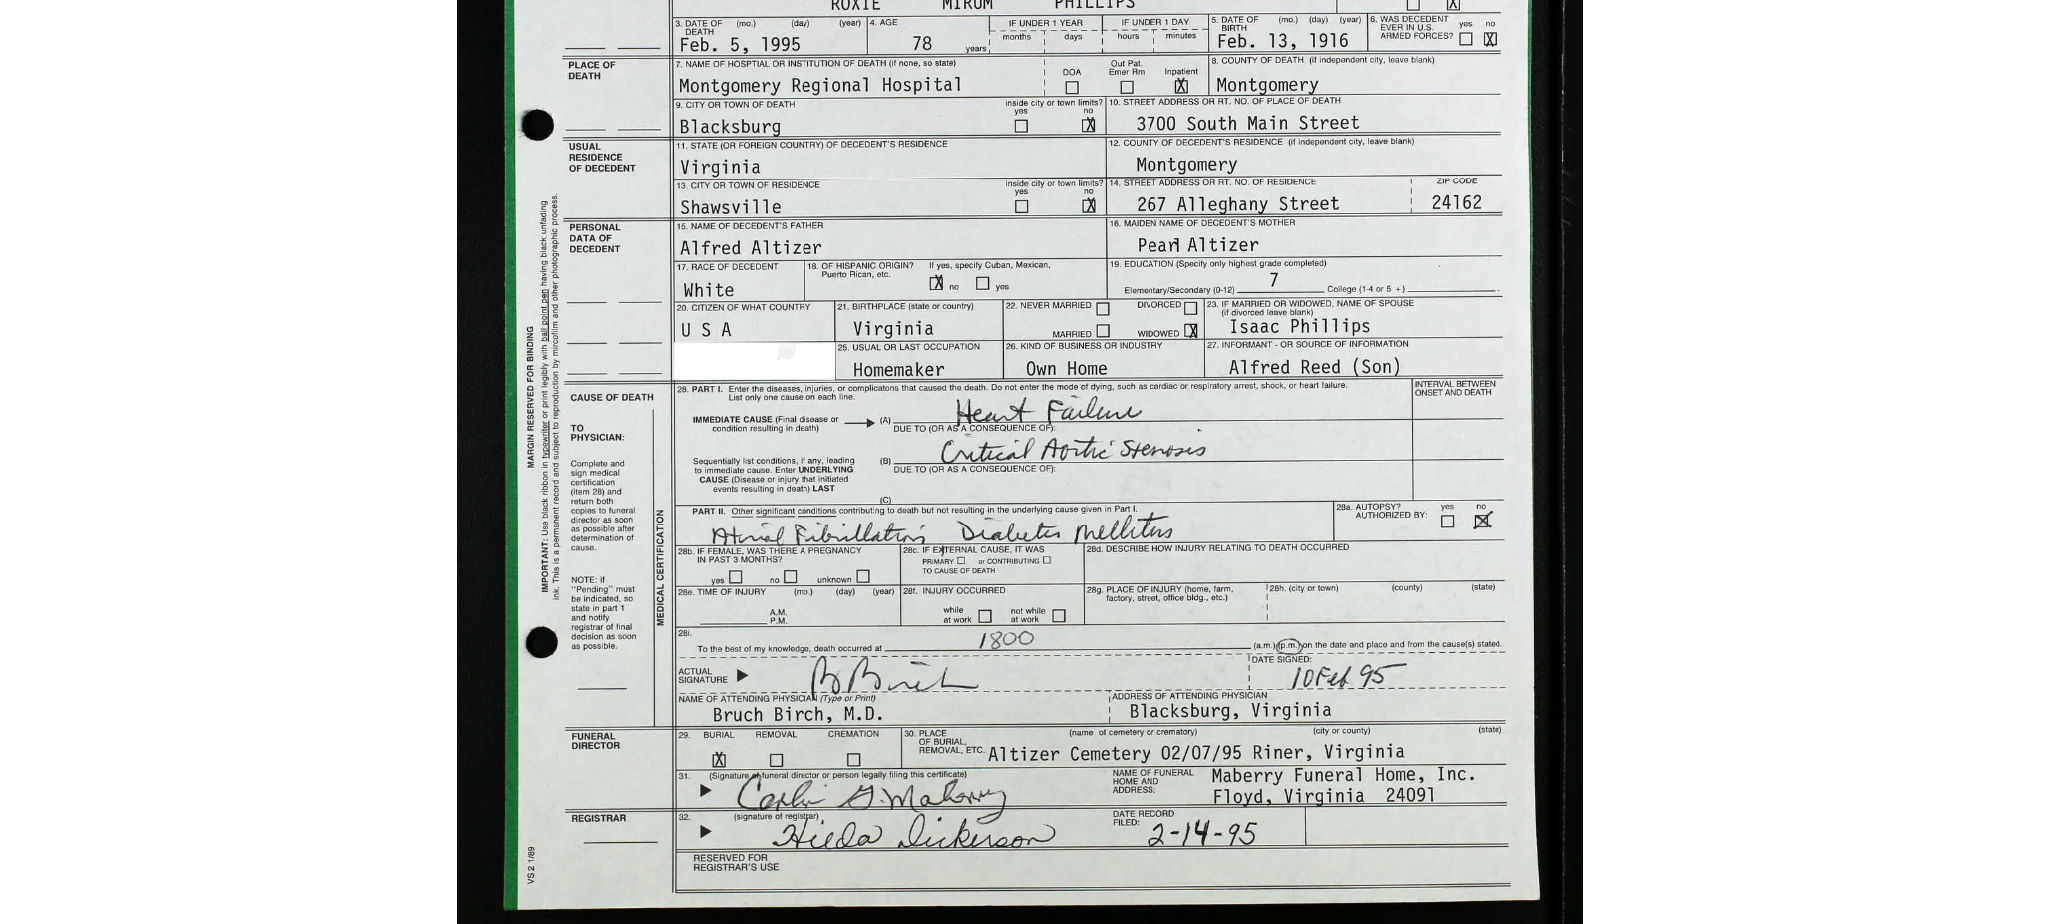 ROXIE MIRUM PHILLIPS
3. DATE OF DEATH (mo.) (day) (year) 4. AGE IF UNDER 1 YEAR IF UNDER 1 DAY 5. DATE OF BIRTH (mo.) (day) (year) 6. WAS DECEDENT EVER IN U.S. ARMED FORCES? yes no
months days hours minutes
Feb. 5, 1995 78 years Feb. 13, 1916 X
PLACE OF DEATH
7. NAME OF HOSPTIAL OR INSTITUTION OF DEATH (if none, so state) DOA Out Pat. Emer Rm Inpatient 8. COUNTY OF DEATH (if independent city, leave blank)
Montgomery Regional Hospital X Montgomery
9. CITY OR TOWN OF DEATH inside city or town limits? yes no 10. STREET ADDRESS OR RT. NO. OF PLACE OF DEATH
Blacksburg X 3700 South Main Street
USUAL RESIDENCE OF DECEDENT
11. STATE (OR FOREIGN COUNTRY) OF DECEDENT'S RESIDENCE 12. COUNTY OF DECEDENT'S RESIDENCE (if independent city, leave blank)
Virginia Montgomery
13. CITY OR TOWN OF RESIDENCE inside city or town limits? yes no 14. STREET ADDRESS OR RT. NO. OF RESIDENCE ZIP CODE
Shawsville X 267 Alleghany Street 24162
PERSONAL DATA OF DECEDENT
15. NAME OF DECEDENT'S FATHER 16. MAIDEN NAME OF DECEDENT'S MOTHER
Alfred Altizer Pearl Altizer
17. RACE OF DECEDENT 18. OF HISPANIC ORIGIN? If yes, specify Cuban, Mexican, Puerto Rican, etc. 19. EDUCATION (Specify only highest grade completed)
White X no yes Elementary/Secondary (0-12) 7 College (1-4 or 5 +)
20. CITIZEN OF WHAT COUNTRY 21. BIRTHPLACE (state or country) 22. NEVER MARRIED DIVORCED 23. IF MARRIED OR WIDOWED, NAME OF SPOUSE (if divorced leave blank)
U S A Virginia MARRIED WIDOWED X Isaac Phillips
25. USUAL OR LAST OCCUPATION 26. KIND OF BUSINESS OR INDUSTRY 27. INFORMANT - OR SOURCE OF INFORMATION
Homemaker Own Home Alfred Reed (Son)
CAUSE OF DEATH
28. PART I. Enter the diseases, injuries, or complicatons that caused the death. Do not enter the mode of dying, such as cardiac or respiratory arrest, shock, or heart failure.
List only one cause on each line.
INTERVAL BETWEEN ONSET AND DEATH
IMMEDIATE CAUSE (Final disease or condition resulting in death) (A) Heart Failure
DUE TO (OR AS A CONSEQUENCE OF):
Sequentially list conditions, if any, leading to immediate cause. Enter UNDERLYING CAUSE (Disease or injury that initiated events resulting in death) LAST
(B) Critical Aortic Stenosis
DUE TO (OR AS A CONSEQUENCE OF):
(C)
TO PHYSICIAN:
Complete and
sign medical
certification
(item 28) and
return both
copies to funeral
director as soon
as possible after
determination of
cause.
NOTE: if
"Pending" must
be indicated, so
state in part 1
and notify
registrar of final
decision as soon
as possible.
MEDICAL CERTIFICATION
PART II. Other significant conditions contributing to death but not resulting in the underlying cause given in Part I.
28a. AUTOPSY? AUTHORIZED BY: yes no X
Atrial Fibrillation Diabetes Mellitus
28b. IF FEMALE, WAS THERE A PREGNANCY IN PAST 3 MONTHS? 28c. IF EXTERNAL CAUSE, IT WAS 28d. DESCRIBE HOW INJURY RELATING TO DEATH OCCURRED
PRIMARY or CONTRIBUTING TO CAUSE OF DEATH
yes no unknown
28e. TIME OF INJURY (mo.) (day) (year) 28f. INJURY OCCURRED 28g. PLACE OF INJURY (home, farm, factory, street, office bldg., etc.) 28h. (city or town) (county) (state)
A.M.
P.M.
while at work not while at work
28i.
To the best of my knowledge, death occurred at 1800 (a.m.)(p.m.)on the date and place and from the cause(s) stated.
ACTUAL SIGNATURE B Birch DATE SIGNED: 10 Feb 95
NAME OF ATTENDING PHYSICIAN (Type or Print) ADDRESS OF ATTENDING PHYSICIAN
Bruch Birch, M.D. Blacksburg, Virginia
FUNERAL DIRECTOR
29. BURIAL REMOVAL CREMATION 30. PLACE OF BURIAL, REMOVAL, ETC. (name of cemetery or crematory) (city or county) (state)
X Altizer Cemetery 02/07/95 Riner, Virginia
31. (Signature of funeral director or person legally filing this certificate) NAME OF FUNERAL HOME AND ADDRESS: Maberry Funeral Home, Inc.
Floyd, Virginia 24091
REGISTRAR
32. (signature of registrar) DATE RECORD FILED:
Hilda Dickerson 2-14-95
RESERVED FOR REGISTRAR'S USE
MARGIN RESERVED FOR BINDING
IMPORTANT: Use black ribbon in typewriter or print legibly with ball point pen having black unfading
ink. This is a permanent record and subject to reproduction by mircofilm and other photographic process.
VS 2 1/89